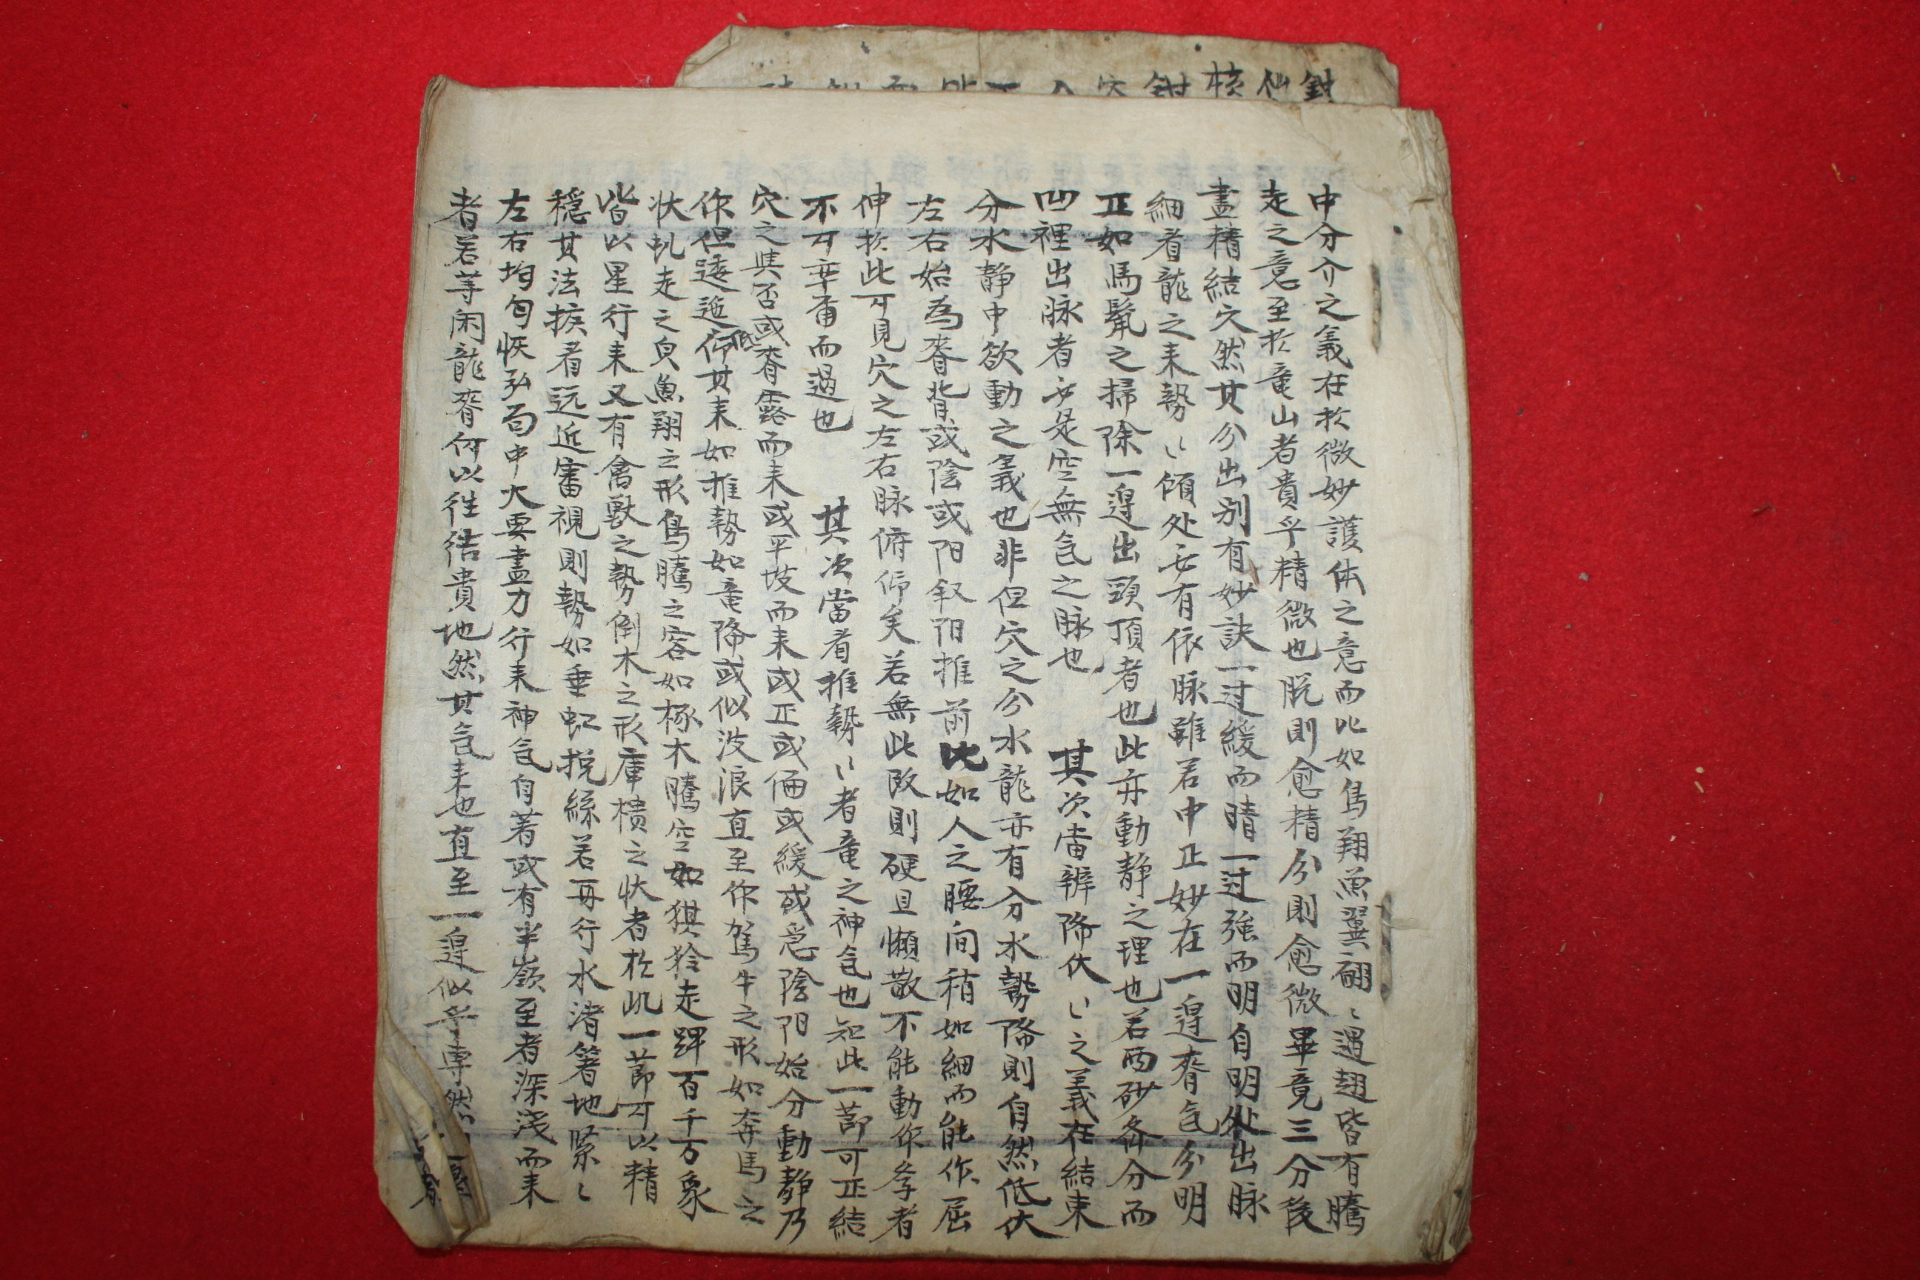 中分介之義在於微妙護体之意而比如鳥翔魚翼翩〻遇翅皆有騰
走之意至於竜山者貴乎精微也脱則愈精分則愈微畢竟三分後
盡精結穴然其分出別有妙訣一过緩而晴一过強而明自明处出脉
細看龍之来勢〻傾处必有依脉雖若中正妙在一邉脊気分明
正如馬鬣之掃除一邉出頸頂者也此亦動静之理也若両砂各分而
凹裡出脉者必是空無気之脉也 其次當辨降伏〻之義在結束
分水静中欲動之義也非但穴之分水龍亦有分水勢降則自然低伏
左右始為脊背或陰或阳叙阳推前比如人之腰间稍如細而能作屈
伸於此可見穴之左右脉俯仰矣若無此段則硬且懶散不能動作孝者
不可弃甭而過也 其次當看推勢〻者竜之神気也知此一節可正結
穴之真否或脊露而来或平坡而来或正或偏或緩或急陰阳始分動靜乃
作但逶迤低仰其来如推勢如竜降或似波浪直至作駕牛之形如奔馬之
状虬走之皃魚翔之形鳥騰之容如椓木騰空如猉狑走蹕百千万象
皆以星行来又有禽獸之勢倒木之形庫横之状者於此一節可以精
穏其法捩看远近審視則勢如垂虹挽絲若再行水渚箸地緊〻
左右均匀恢弘局中大要盡力行来神气自著或有半嶺至者深浅而来
者若等闲龍脊何以徃结貴地然其气来也直至一邉似乎専然